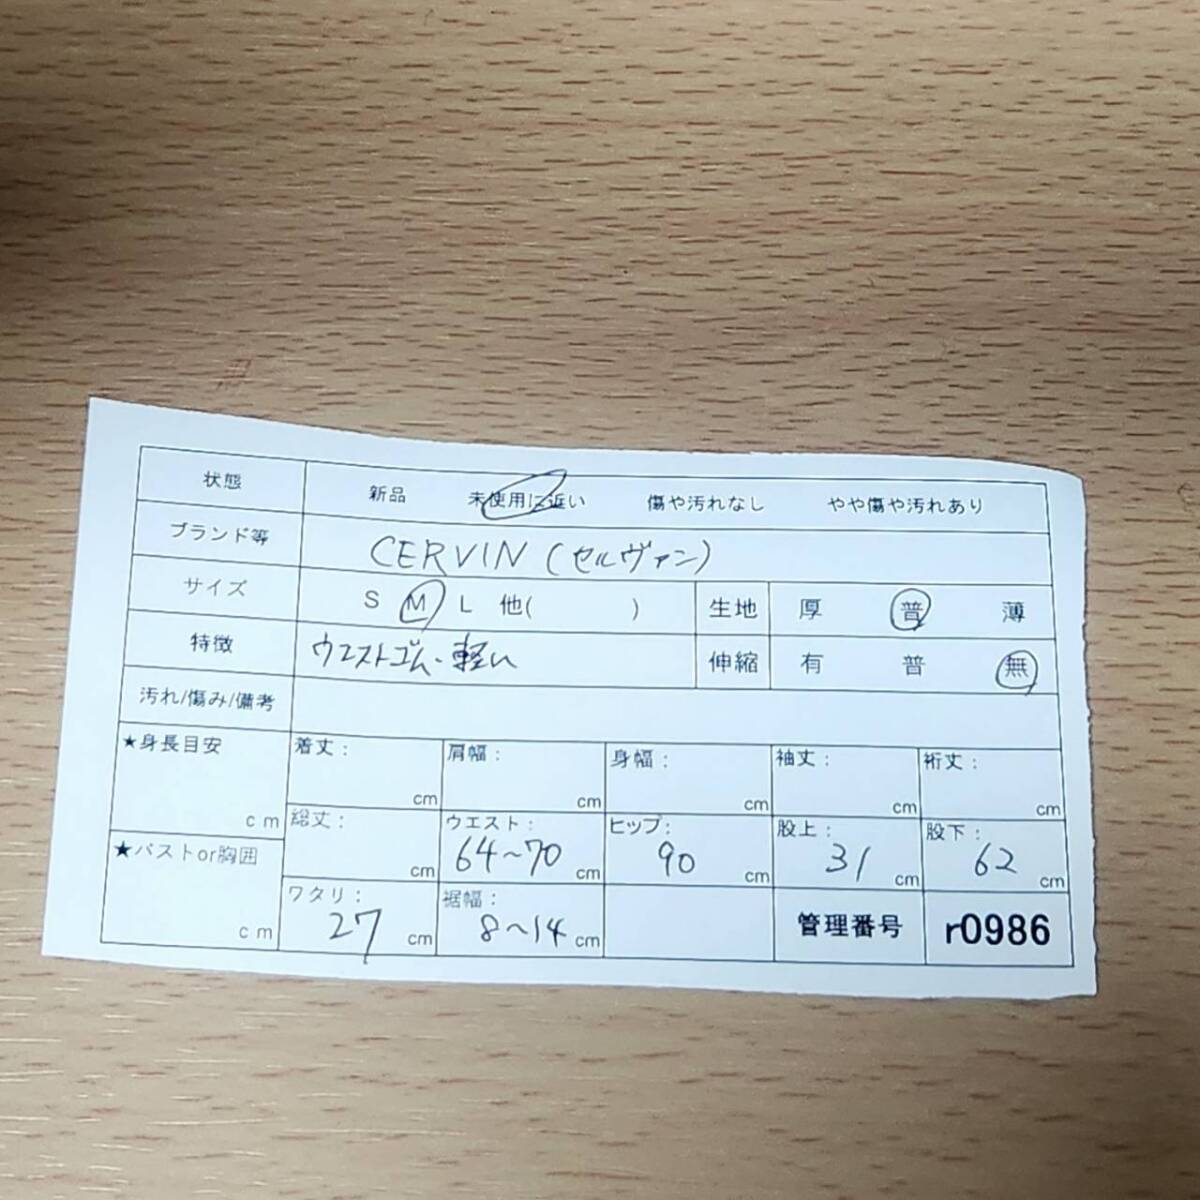 状態 新品 未使用に近い 傷や汚れなし やや傷や汚れあり
ブランド等 CERVIN (セルヴァン)
サイズ S M L 他( ) 生地 厚 普 薄
特徴 ウエストゴム・軽い 伸縮 有 普 無
汚れ/傷み/備考
★身長目安 cm 着丈: cm 肩幅: cm 身幅: cm 袖丈: cm 裄丈: cm
総丈: cm ウエスト: 64~70 cm ヒップ: 90 cm 股上: 31 cm 股下: 62 cm
★バストor胸囲 cm ワタリ: 27 cm 裾幅: 8~14 cm 管理番号 r0986